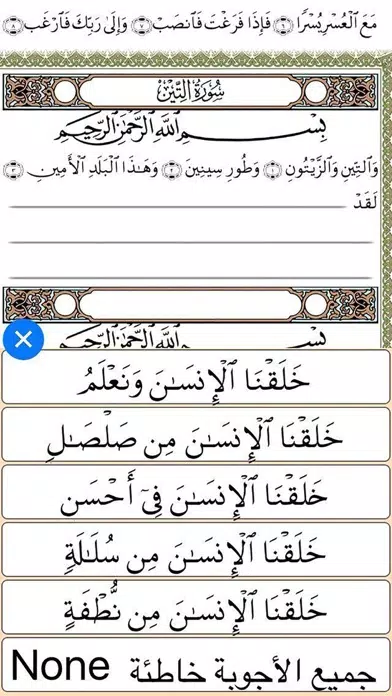 مَعَ ٱلۡعُسۡرِ يُسۡرٗا ٦ فَإِذَا فَرَغۡتَ فَٱنصَبۡ ٧ وَإِلَىٰ رَبِّكَ فَٱرۡغَب ٨
سُورَةُ التِّينِ
بِسۡمِ ٱللَّهِ ٱلرَّحۡمَٰنِ ٱلرَّحِيمِ
وَٱلتِّينِ وَٱلزَّيۡتُونِ ١ وَطُورِ سِينِينَ ٢ وَهَٰذَا ٱلۡبَلَدِ ٱلۡأَمِينِ ٣
لَقَدۡ
بِسۡمِ ٱللَّهِ ٱلرَّحۡمَٰنِ ٱلرَّحِيمِ
خَلَقۡنَا ٱلۡإِنسَٰنَ وَنَعۡلَمُ
خَلَقۡنَا ٱلۡإِنسَٰنَ مِن صَلۡصَٰلٖ
خَلَقۡنَا ٱلۡإِنسَٰنَ فِيٓ أَحۡسَنِ
خَلَقۡنَا ٱلۡإِنسَٰنَ مِن سُلَٰلَةٖ
خَلَقۡنَا ٱلۡإِنسَٰنَ مِن نُّطۡفَةٍ
جميع الأجوبة خاطئة None